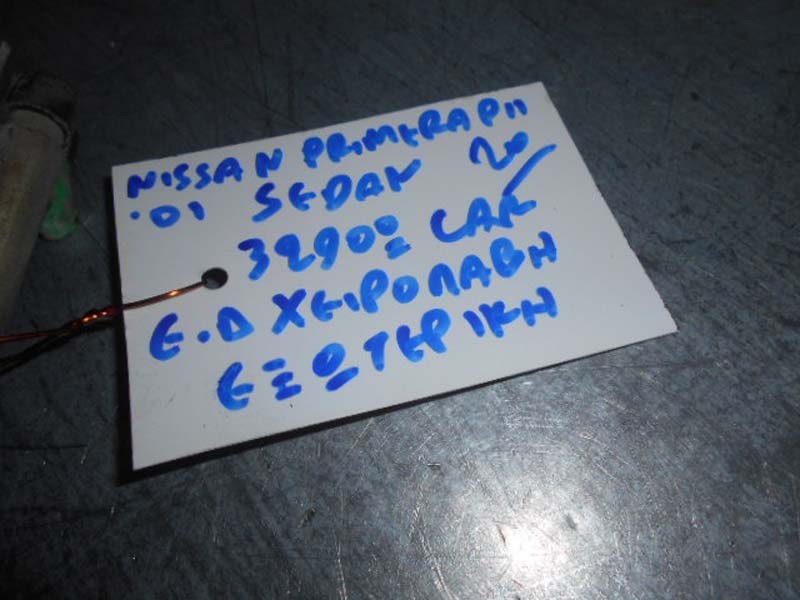 NISSAN PRIMERA P11
'01 SEDAN
32900 CAR
Ε.Δ ΧΕΙΡΟΛΑΒΗ
ΕΞΩΤΕΡΙΚΗ